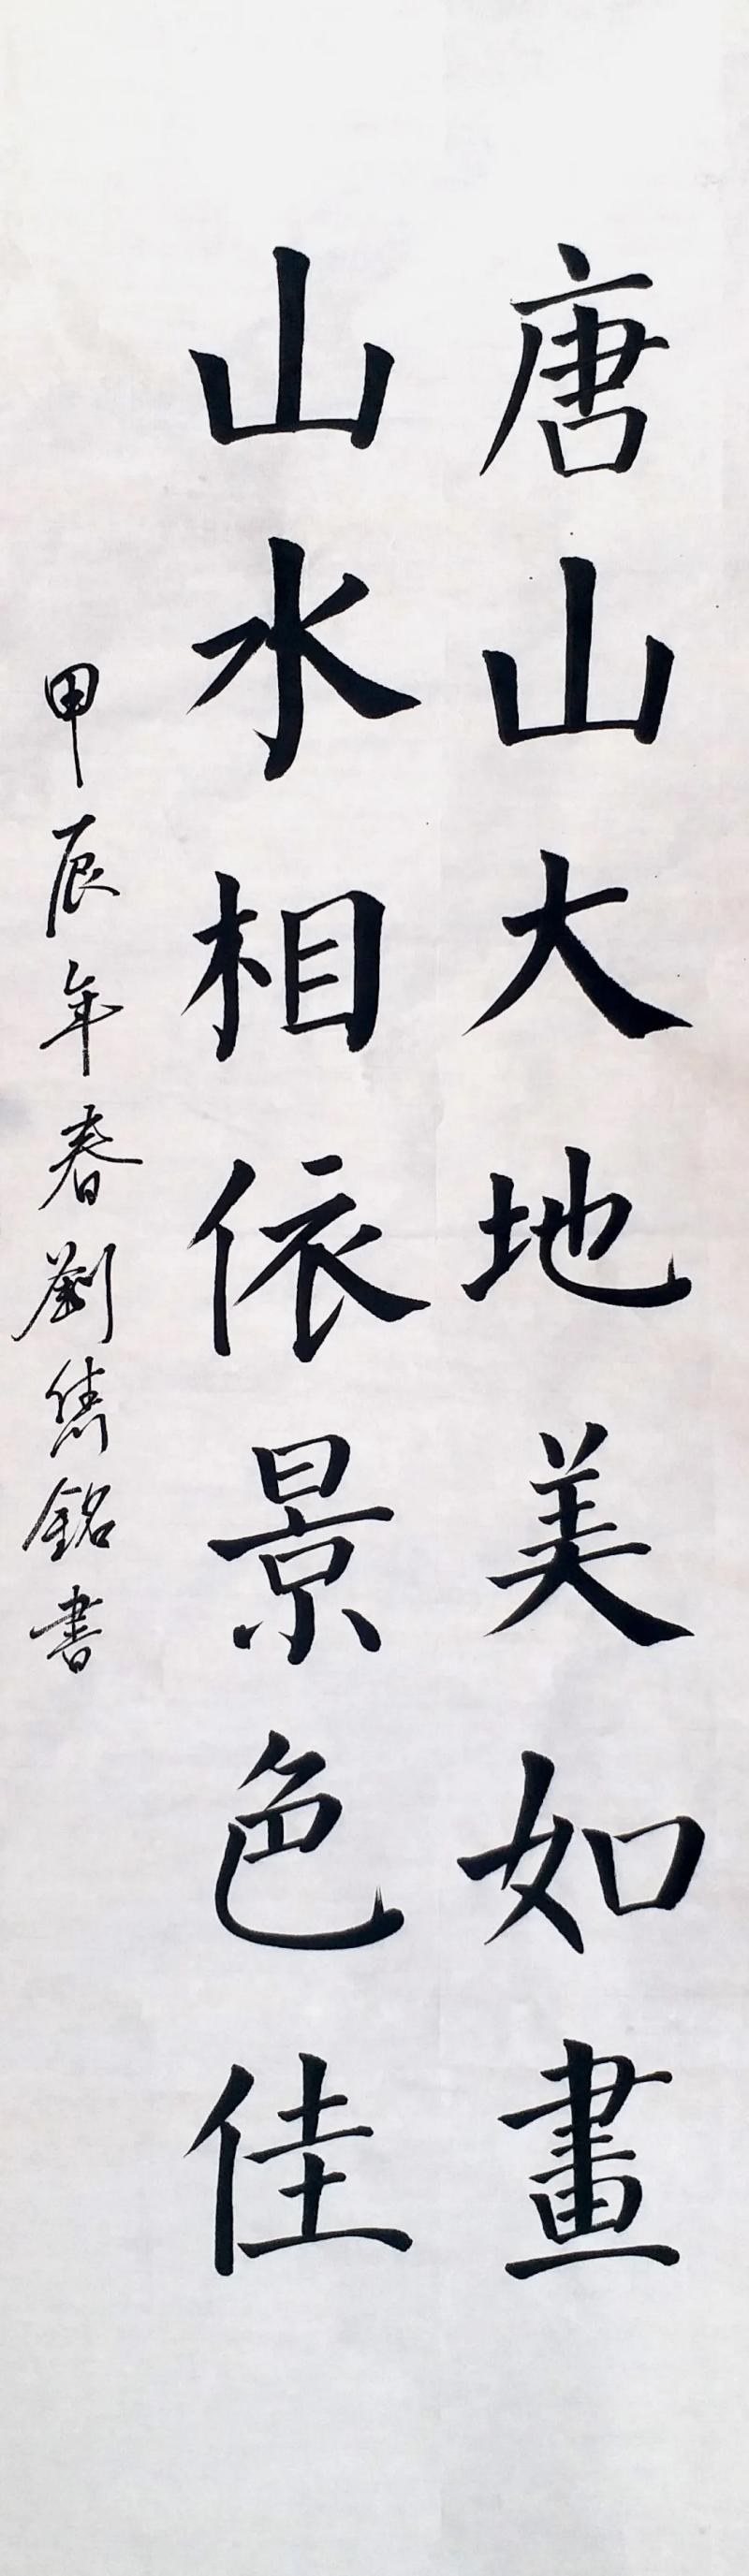 唐山大地美如畫
山水相依景色佳
甲辰年春劉雋銘書